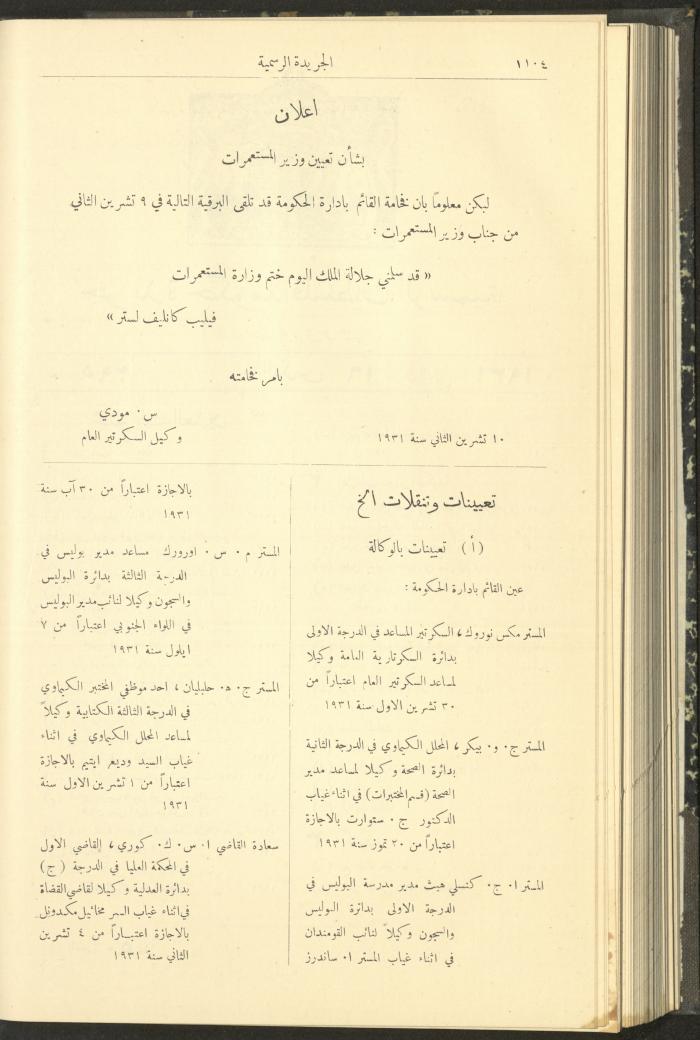 ١١٠٤
الجريدة الرسمية
اعلان
بشأن تعيين وزير المستعمرات
ليكن معلوماً بان فخامة القائم بادارة الحكومة قد تلقى البرقية التالية في ٩ تشرين الثاني
من جناب وزير المستعمرات :
« قد سلمني جلالة الملك اليوم ختم وزارة المستعمرات
فيليب كانليف لستر »
بامر فخامته
س . مودي
١٠ تشرين الثاني سنة ١٩٣١
وكيل السكرتير العام
تعيينات وتنقلات الخ
( أ ) تعيينات بالوكالة
عين القائم بادارة الحكومة :
المستر مكس نوروك ، السكرتير المساعد في الدرجة الاولى
بدائرة السكرتارية العامة وكيلا
لمساعد السكرتير العام اعتباراً من
٣٠ تشرين الاول سنة ١٩٣١
المستر ج . و . بيكر ، المحلل الكيماوي في الدرجة الثانية
بدائرة الصحة وكيلا لمساعد مدير
الصحة (قسم المختبرات) في اثناء غياب
الدكتور ج . ستوارت بالاجازة
اعتباراً من ٢٠ تموز سنة ١٩٣١
المستر ا . ج . كنسلي هيث مدير مدرسة البوليس في
الدرجة الاولى بدائرة البوليس
والسجون وكيلاً لنائب القومندان
في اثناء غياب المستر ا . ساندرز
بالاجازة اعتباراً من ٣٠ آب سنة
١٩٣١
المستر م . س . اورورك مساعد مدير بوليس في
الدرجة الثالثة بدائرة البوليس
والسجون وكيلا لنائب مدير البوليس
في اللواء الجنوبي اعتباراً من ٧
ايلول سنة ١٩٣١
المستر ج . ه . حلبليان ، احد موظفي المختبر الكيماوي
في الدرجة الثالثة الكتابية وكيلاً
لمساعد المحلل الكيماوي في اثناء
غياب السيد وديع ايتيم بالاجازة
اعتباراً من ١ تشرين الاول سنة
١٩٣١
سعادة القاضي ا . س . ك . كوري ، القاضي الاول
في المحكمة العليا في الدرجة ( ج )
بدائرة العدلية وكيلا لقاضي القضاة
في اثناء غياب السر مخائيل مكدونل
بالاجازة اعتباراً من ٤ تشرين
الثاني سنة ١٩٣١